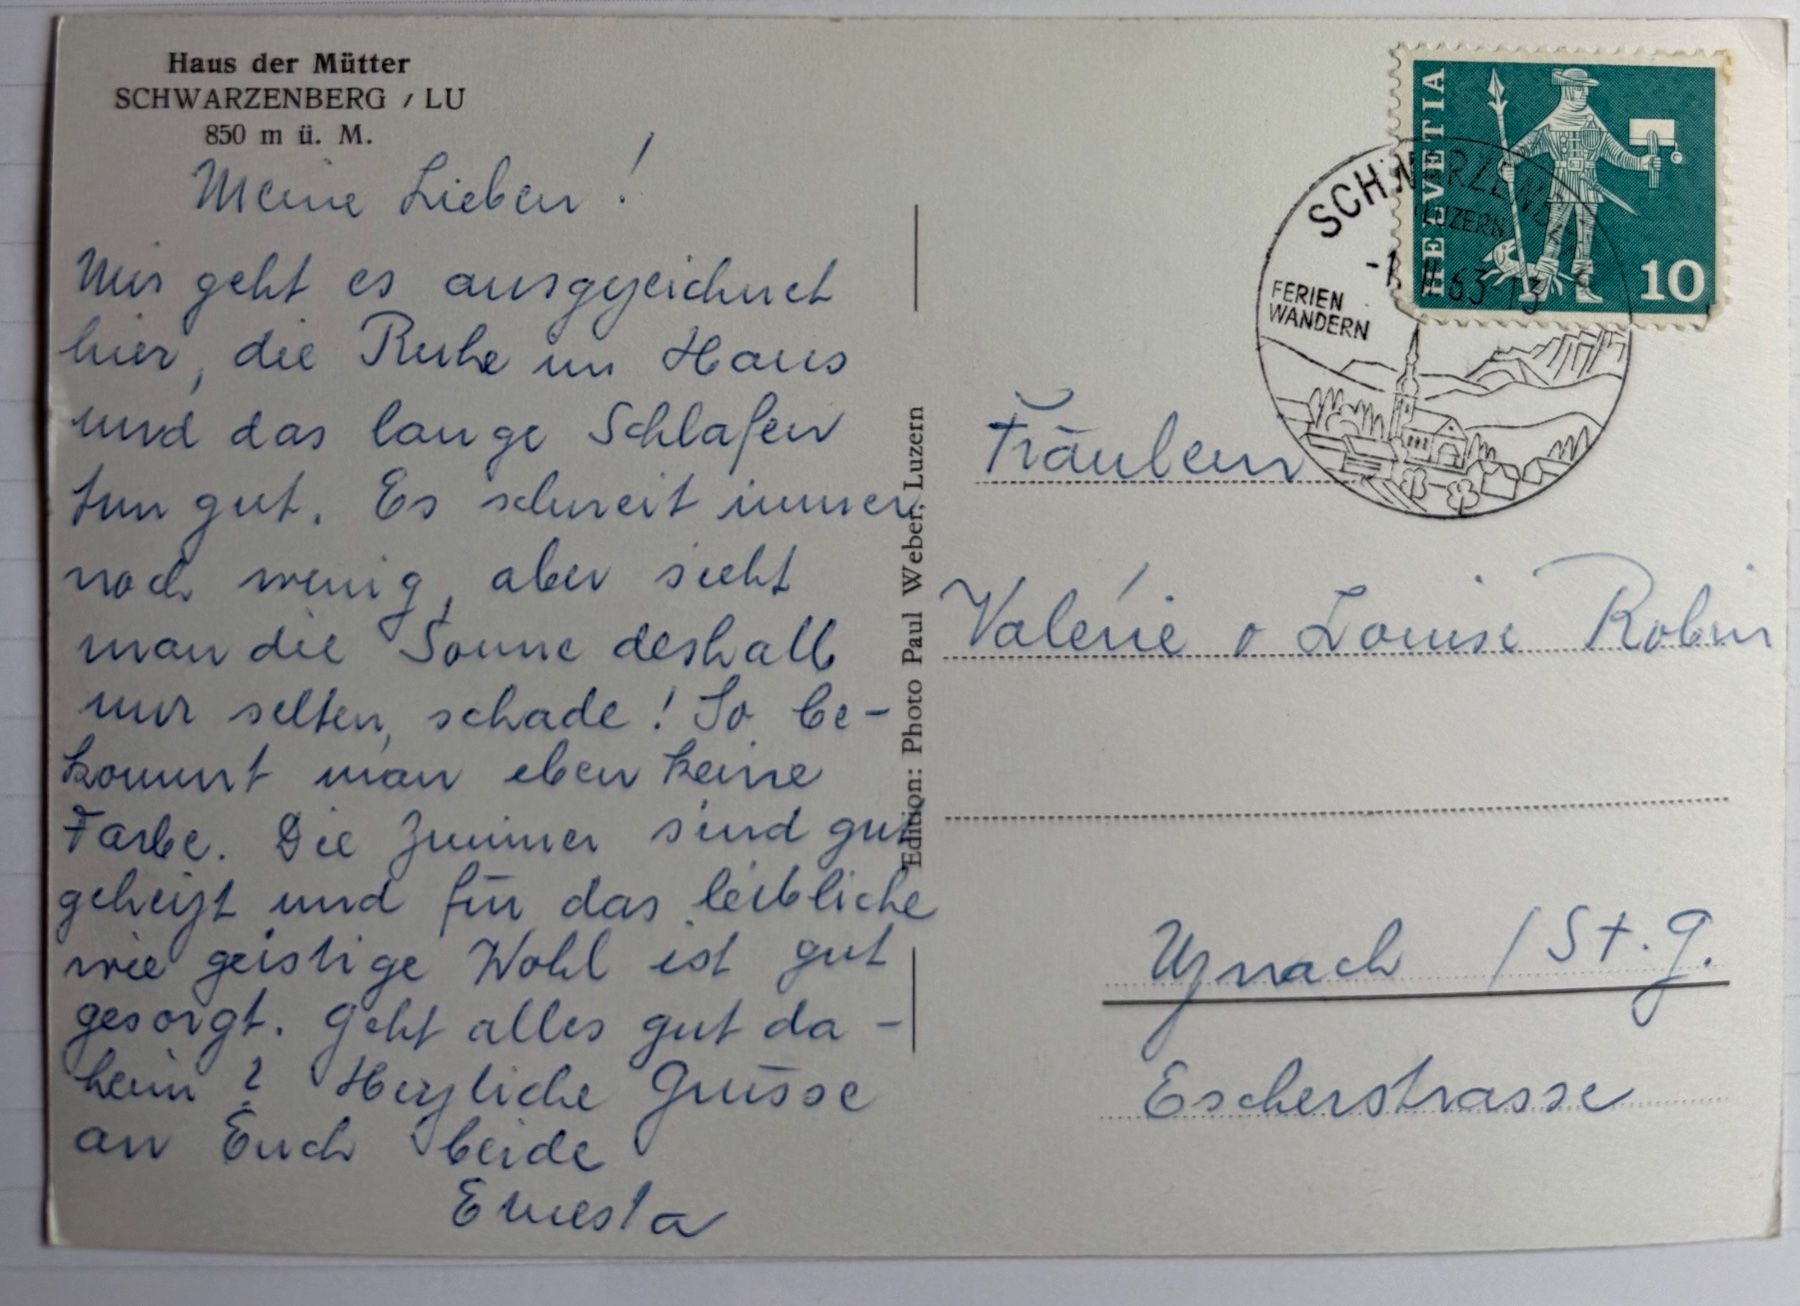 Haus der Mütter
SCHWARZENBERG / LU
850 m ü. M.
Meine Lieben!
Mir geht es ausgezeichnet
hier, die Ruhe im Haus
und das lange Schlafen
tun gut. Es schneit immer
noch wenig, aber sieht
man die Sonne deshalb
nur selten, schade! So be-
kommt man eben keine
Farbe. Die Zimmer sind gut
geheizt und für das leibliche
wie geistige Wohl ist gut
gesorgt. Geht alles gut da-
heim? Herzliche Grüsse
an Euch beide
Ernesta
Edition: Photo Paul Weber, Luzern
HELVETIA
10
SCHWARZENBERG
(LUZERN)
II. 63
FERIEN
WANDERN
Fräulein
Valérie o Louise Robin
Uznach / St. G.
Escherstrasse